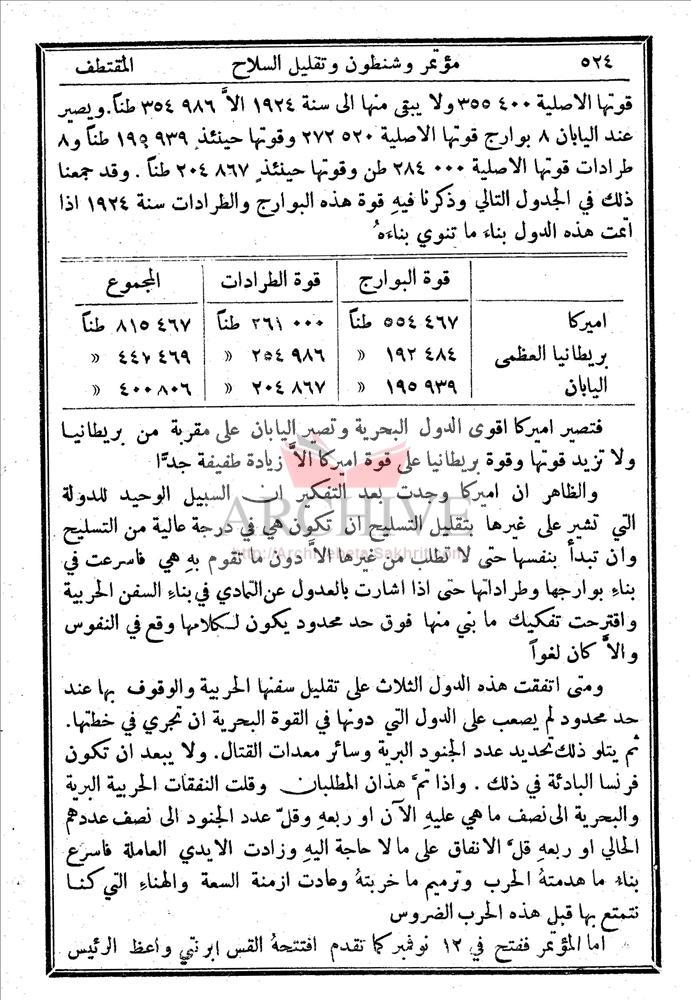 ٥٢٤ مؤتمر وشنطون وتقليل السلاح المقتطف
قوتها الاصلية ٤٠٠ ٣٥٥ ولا يبقى منها الى سنة ١٩٢٤ الاَّ ٩٨٦ ٣٥٤ طناً. ويصير
عند اليابان ٨ بوارج قوتها الاصلية ٥٢٠ ٢٧٢ وقوتها حينئذٍ ٩٣٩ ١٩٥ طناً و٨
طرادات قوتها الاصلية ٠٠٠ ٢٨٤ طن وقوتها حينئذٍ ٨٦٧ ٢٠٤ طناً . وقد جمعنا
ذلك في الجدول التالي وذكرنا فيهِ قوة هذه البوارج والطرادات سنة ١٩٢٤ اذا
اتمت هذه الدول بناءَ ما تنوي بناءَهُ
قوة البوارج قوة الطرادات المجموع
اميركا ٤٦٧ ٥٥٤ طناً ٠٠٠ ٢٦١ طناً ٤٦٧ ٨١٥ طناً
بريطانيا العظمى ٤٨٤ ١٩٢ » ٩٨٦ ٢٥٤ » ٤٦٩ ٤٤٧ »
اليابان ٩٣٩ ١٩٥ » ٨٦٧ ٢٠٤ » ٨٠٦ ٤٠٠ »
فتصير اميركا اقوى الدول البحرية وتصير اليابان على مقربة من بريطانيا
ولا تزيد قوتها وقوة بريطانيا على قوة اميركا الاَّ زيادة طفيفة جدًّا
والظاهر ان اميركا وجدت بعد التفكير ان السبيل الوحيد للدولة
التي تشير على غيرها بتقليل التسليح ان تكون هي في درجة عالية من التسليح
وان تبدأ بنفسها حتى لا تطلب من غيرها الاَّ دون ما تقوم بهِ هي فاسرعت في
بناءِ بوارجها وطراداتها حتى اذا اشارت بالعدول عن التمادي في بناءِ السفن الحربية
واقترحت تفكيك ما بني منها فوق حد محدود يكون لكلامها وقع في النفوس
والاَّ كان لغواً
ومتى اتفقت هذه الدول الثلاث على تقليل سفنها الحربية والوقوف بها عند
حد محدود لم يصعب على الدول التي دونها في القوة البحرية ان تجري في خطتها.
ثم يتلو ذلك تحديد عدد الجنود البرية وسائر معدات القتال. ولا يبعد ان تكون
فرنسا البادئة في ذلك . واذا تمَّ هذان المطلبان وقلت النفقات الحربية البرية
والبحرية الى نصف ما هي عليهِ الآن او ربعهِ وقلّ عدد الجنود الى نصف عددهم
الحالي او ربعهِ قلَّ الانفاق على ما لا حاجة اليهِ وزادت الايدي العاملة فاسرع
بناءُ ما هدمتهُ الحرب وترميم ما خربتهُ وعادت ازمنة السعة والهناءِ التي كنا
نتمتع بها قبل هذه الحرب الضروس
اما المؤتمر ففتح في ١٢ نوفمبر كما تقدم افتتحهُ القس ابرنتي واعظ الرئيس
ARCHIVE